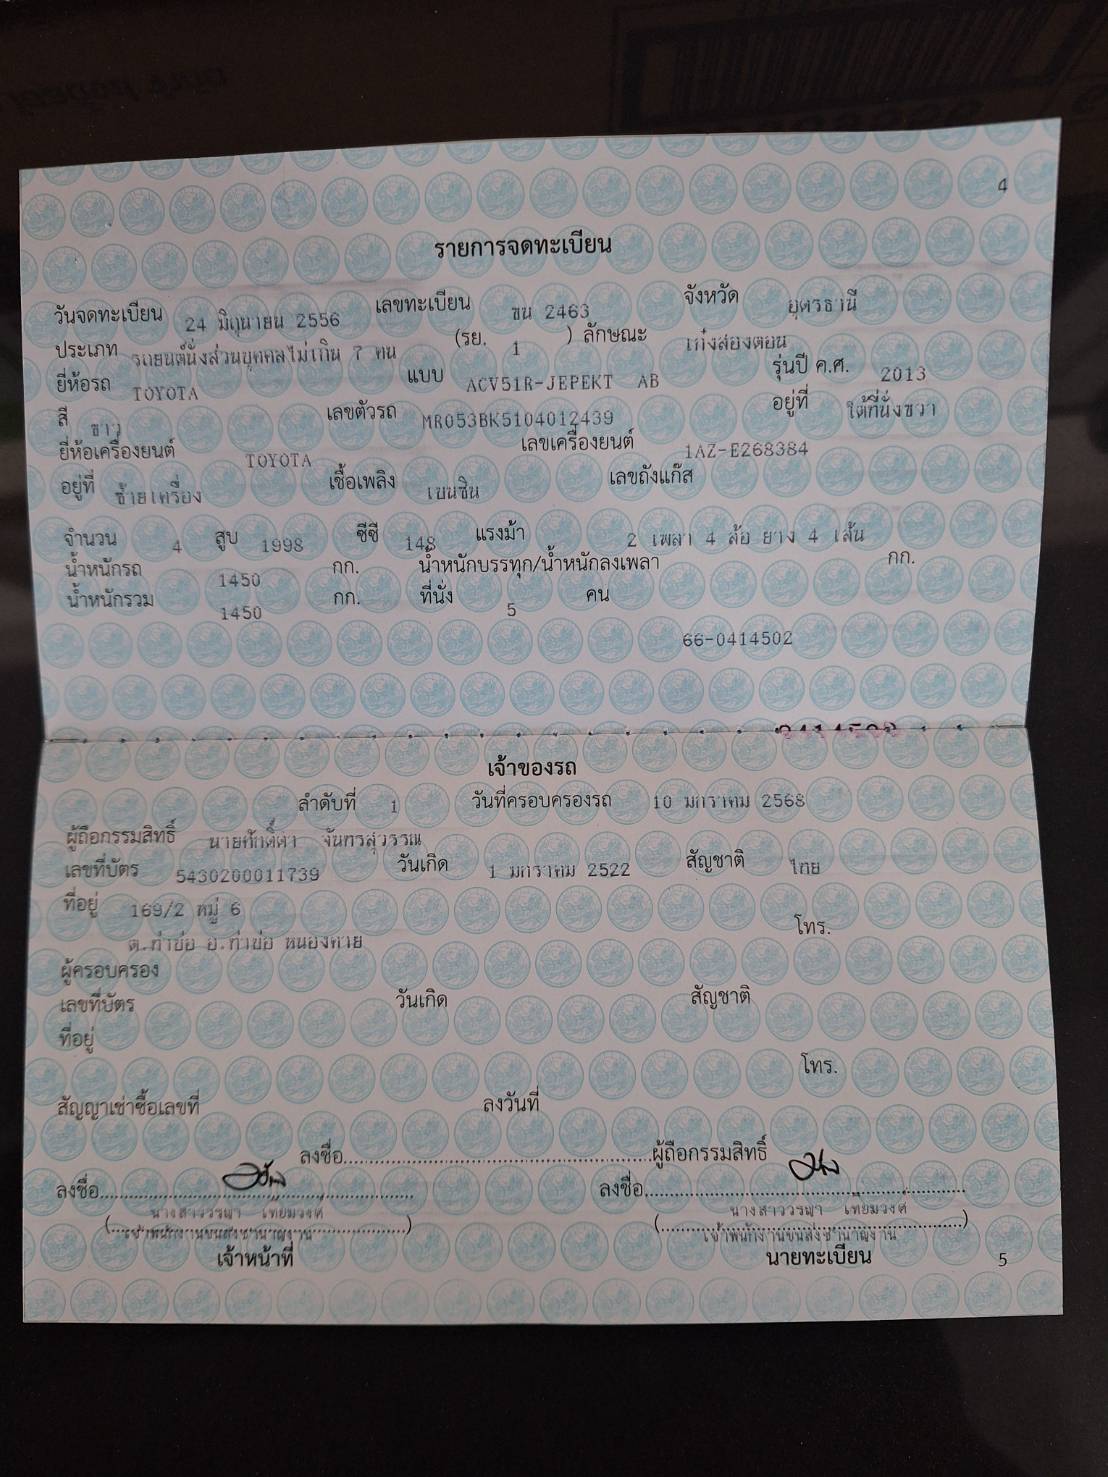 4
รายการจดทะเบียน
วันจดทะเบียน 24 มิถุนายน 2556 เลขทะเบียน ขน 2463 จังหวัด อุดรธานี
ประเภท รถยนต์นั่งส่วนบุคคลไม่เกิน 7 คน (รย. 1 ) ลักษณะ เก๋งสองตอน
ยี่ห้อรถ TOYOTA แบบ ACV51R-JEPEKT AB รุ่นปี ค.ศ. 2013
สี ขาว เลขตัวรถ MR053BK5104012439 อยู่ที่ ใต้ที่นั่งขวา
ยี่ห้อเครื่องยนต์ TOYOTA เลขเครื่องยนต์ 1AZ-E268384
อยู่ที่ ซ้ายเครื่อง เชื้อเพลิง เบนซิน เลขถังแก๊ส
จำนวน 4 สูบ 1998 ซีซี 148 แรงม้า 2 เพลา 4 ล้อ ยาง 4 เส้น
น้ำหนักรถ 1450 กก. น้ำหนักบรรทุก/น้ำหนักลงเพลา กก.
น้ำหนักรวม 1450 กก. ที่นั่ง 5 คน
66-0414502
เจ้าของรถ
ลำดับที่ 1 วันที่ครอบครองรถ 10 มกราคม 2568
ผู้ถือกรรมสิทธิ์ นายศักดิ์ดา จันทรสุวรรณ
เลขที่บัตร 5430200011739 วันเกิด 1 มกราคม 2522 สัญชาติ ไทย
ที่อยู่ 169/2 หมู่ 6
ต.ท่าบ่อ อ.ท่าบ่อ หนองคาย โทร.
ผู้ครอบครอง
เลขที่บัตร วันเกิด สัญชาติ
ที่อยู่
โทร.
สัญญาเช่าซื้อเลขที่ ลงวันที่
ลงชื่อ ผู้ถือกรรมสิทธิ์
ลงชื่อ ลงชื่อ
นางสาววรญา เทียมวงศ์ นางสาววรญา เทียมวงศ์
(เจ้าพนักงานขนส่งชำนาญงาน) (เจ้าพนักงานขนส่งชำนาญงาน)
เจ้าหน้าที่ นายทะเบียน
5